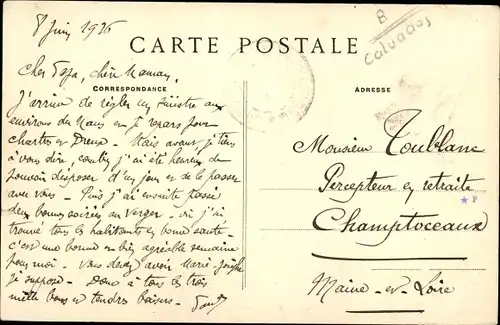 8 juin 1926
B
Calvados
CARTE POSTALE
Cher Papa, chère Maman,
CORRESPONDANCE
ADRESSE
J'arrive de régler un sinistre aux
environs du Mans et je repars pour
Chartres et Dreux. Mais avant je tiens
à vous dire, combien j'ai été heureux de
pouvoir disposer d'un jour et de le passer
avec vous. Puis j'ai ensuite passé
deux bonnes soirées au Verger où j'ai
trouvé tous les habitants en bonne santé
c'est une bonne et bien agréable semaine
pour moi. Vous devez avoir Marie-Josèphe
je suppose. Donc à tous les trois
mille bons et tendres baisers.
Monsieur Toublanc
Percepteur en retraite
Champtoceaux
Maine-et-Loire